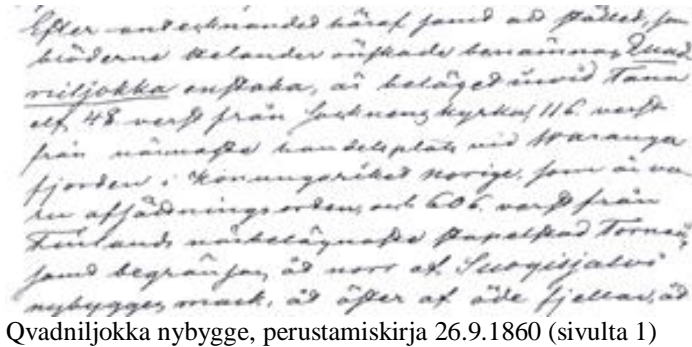 Efter antecknandet häraf samt att stället, som
bröderne Helander önskade benämnas Quad
niljokka enstaka, är beläget invid Tana
elf, 48 verst från socknens kyrka, 116 verst
från närmaste handelsplats vid Waranger
fjorden i Konungariket Norige, som är va
ru afsättningsorden, och 606 verst från
Finlands närbelägnaste stapelstad Torneå,
samt begränsas åt norr af
nybygges mark, åt öster af öde fjellar, åt
Qvadniljokka nybygge, perustamiskirja 26.9.1860 (sivulta 1)